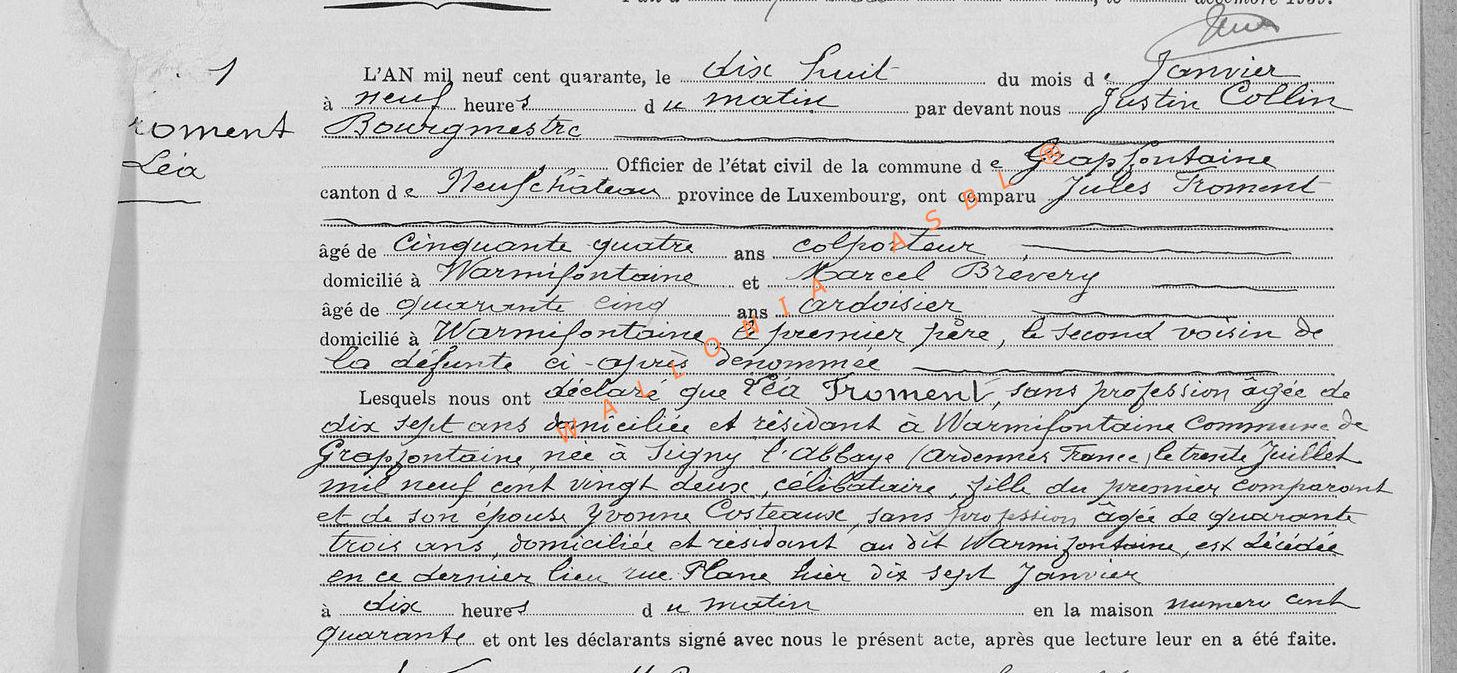 décembre 1939.
1
L'AN mil neuf cent quarante, le dix huit du mois de Janvier
à neuf heures du matin par devant nous Justin Collin
roment
Bourgmestre
Léa
Officier de l'état civil de la commune de Grapfontaine
canton de Neufchâteau province de Luxembourg, ont comparu Jules Froment
âgé de cinquante quatre ans colporteur
domicilié à Warmifontaine et Marcel Brévery
âgé de quarante cinq ans ardoisier
domicilié à Warmifontaine, le premier père, le second voisin de
la défunte ci-après dénommée
Lesquels nous ont déclaré que Léa Froment, sans profession âgée de
dix sept ans domiciliée et résidant à Warmifontaine Commune de
Grapfontaine, née à Signy l'abbaye (Ardennes France) le trente Juillet
mil neuf cent vingt deux, célibataire, fille du premier comparant
et de son épouse Yvonne Costeaux, sans profession âgée de quarante
trois ans, domiciliée et résidant au dit Warmifontaine, est décédée
en ce dernier lieu rue Plane hier dix sept Janvier
à dix heures du matin en la maison numéro cent
quarante et ont les déclarants signé avec nous le présent acte, après que lecture leur en a été faite.
WALLONIA ASBL ®